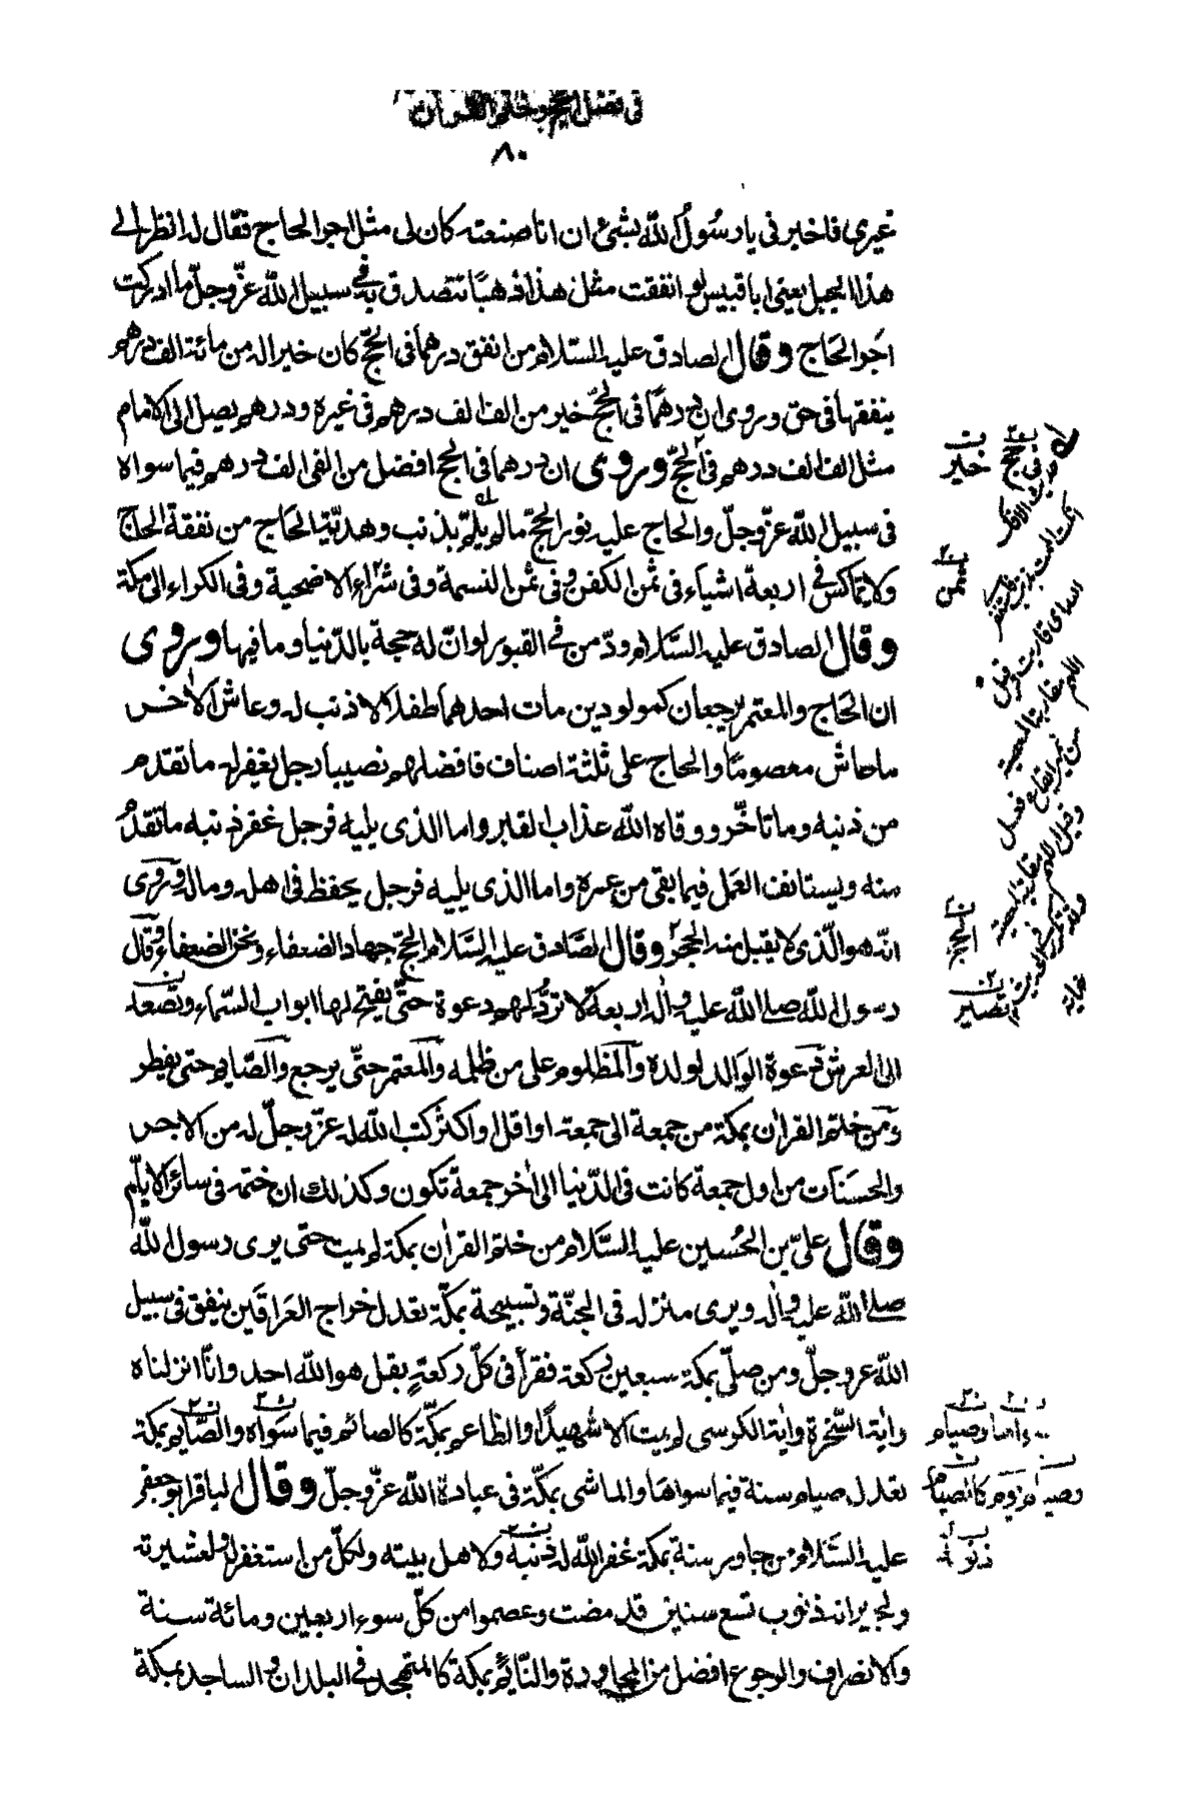 في فضل الحج وختم القرآن
٨٠
غيري فاخبرني يا رسول الله بشئ ان انا صنعته كان لي مثل اجر الحاج فقال له انظر الى
هذا الجبل يعني ابا قبيس لو انفقت مثل هذا ذهبًا تتصدق به في سبيل الله عزّوجلّ ما ادركت
اجر الحاج وقال الصادق عليه السّلام من انفق درهمًا في الحجّ كان خيرا له من مائة الف درهم
ينفقها في حق وروى ان درهمًا في الحجّ خير من الف الف درهم في غيره ودرهم يصل الى الامام
مثل الف الف درهم في الحجّ وروى ان درهما في الحج افضل من الفي الف درهم فيما سواه
في سبيل الله عزّوجلّ والحاج عليه نور الحجّ ما لم يلمّ بذنب وهديّة الحَاج من نفقة الحاج
ولا يماكس في اربعة اشياء في ثمن الكفن وفي ثمن النسمة وفي شراء الاضحية وفي الكراء الى مكة
وقال الصادق عليه السّلام ودّ من في القبور لو انّ له حجة بالدّنيا وما فيها وروى
ان الحَاج والمعتمر يرجعان كمولودين مات احدهما طفلا لا ذنب له وعاش الاخر
ما عاش معصومًا والحاج على ثلثة اصناف فافضلهم نصيبا رجل يغفر له ما تقدم
من ذنبه وما تاخّر ووقاه الله عذاب القبر واما الذى يليه فرجل غفر ذنبه ما تقدّم
منه ويستانف العَمل فيما بقى من عمره واما الذى يليه فرجل يحفظ في اهله وماله وروى
انّه هو الّذى لا يقبل منه الحج وقال الصّادق عليه السّلام الحجّ جهاد الضعفاء ونحن الضعفاء وقال
رسول الله صلى الله عليه وآله اربعة لا تردّ لهم دعوة حتّى يفتح لها ابواب السّماء وتصعد
الى العرش دعوة الوَالد لولده والمظلوم على من ظلمه والمعتمر حتّى يرجع والصّايم حتى يفطر
ومن ختم القران بمكة من جمعة الى جمعة او اقل او اكثر كتب الله له عزّوجلّ له من الاجر
والحسَنات من اول جمعة كانت في الدّنيا الى اخر جمعة تكون وكذلك ان ختمه في سائر الايّام
وقال علىّ بن الحُسين عليه السَّلام من ختم القران بمكة لم يمت حتى يرى رسول الله
صلى الله عليه وآله ويرى منزله في الجنّة وتسبيحة بمكّة تعدل خراج العَراقَين ينفق في سبيل
الله عزوجلّ ومن صلّى بمكة سبعين ركعة فقرأ في كلّ ركعةٍ بقل هو الله احد وانّا انزلناه
واية السّخرة واية الكرسى لم يمت الا شهيدًا والطاعم بمكّة كالصائم فيما سواه والصّايم بمكة
تعدل صيام سنة فيما سواها والماشى بمكّة في عبادة الله عزّوجلّ وقال الباقر ابو جعفر
عليه السَّلام من جاور سنة بمكة غفر الله له ذنبه ولاهل بيته ولكلّ من استغفر له ولعشيرته
ولجيرانه ذنوب تسع سنين قد مضت وعصموا من كلّ سوء اربعين ومائة سنة
والانصراف والرجوع افضل من المجاورة والنّائم بمكة كالمتهجد في البلدان والساجد بمكة
خير
ثمن
الحج
تصير